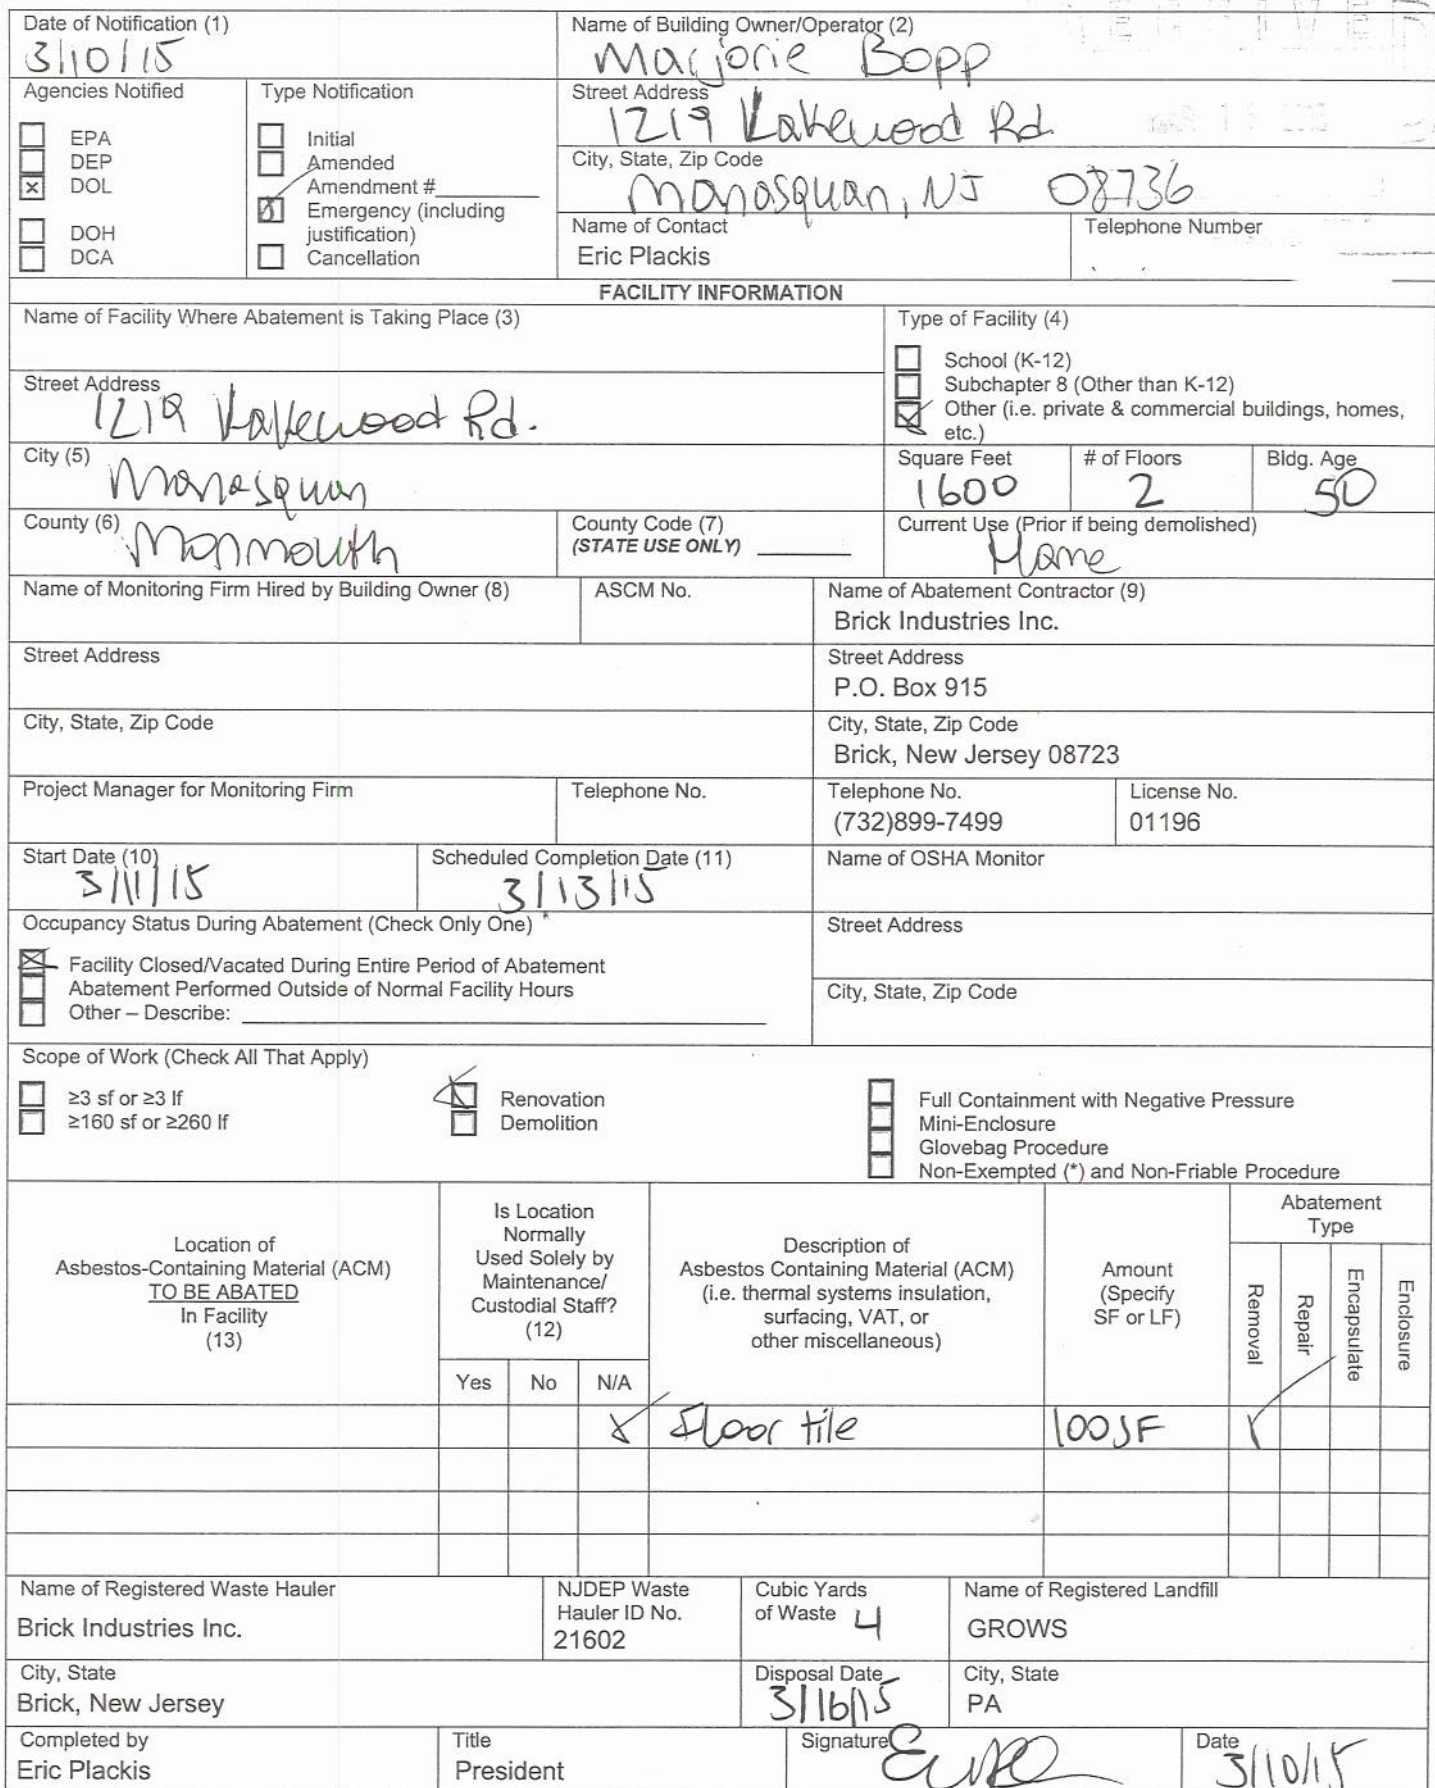 Date of Notification (1)
3/10/15
Name of Building Owner/Operator (2)
Marjorie Bopp
Agencies Notified
EPA
DEP
DOL
DOH
DCA
Type Notification
Initial
Amended
Amendment #
Emergency (including
justification)
Cancellation
Street Address
1219 Lakewood Rd.
City, State, Zip Code
Manasquan, NJ 08736
Name of Contact
Eric Plackis
Telephone Number
FACILITY INFORMATION
Name of Facility Where Abatement is Taking Place (3)
Type of Facility (4)
School (K-12)
Subchapter 8 (Other than K-12)
Other (i.e. private & commercial buildings, homes,
etc.)
Street Address
1219 Lakewood Rd.
City (5)
Manasquan
Square Feet
1600
# of Floors
2
Bldg. Age
50
County (6)
Monmouth
County Code (7)
(STATE USE ONLY)
Current Use (Prior if being demolished)
Home
Name of Monitoring Firm Hired by Building Owner (8)
ASCM No.
Name of Abatement Contractor (9)
Brick Industries Inc.
Street Address
Street Address
P.O. Box 915
City, State, Zip Code
City, State, Zip Code
Brick, New Jersey 08723
Project Manager for Monitoring Firm
Telephone No.
Telephone No.
(732)899-7499
License No.
01196
Start Date (10)
3/11/15
Scheduled Completion Date (11)
3/13/15
Name of OSHA Monitor
Occupancy Status During Abatement (Check Only One)
Facility Closed/Vacated During Entire Period of Abatement
Abatement Performed Outside of Normal Facility Hours
Other – Describe:
Street Address
City, State, Zip Code
Scope of Work (Check All That Apply)
≥3 sf or ≥3 lf
≥160 sf or ≥260 lf
Renovation
Demolition
Full Containment with Negative Pressure
Mini-Enclosure
Glovebag Procedure
Non-Exempted (*) and Non-Friable Procedure
Location of
Asbestos-Containing Material (ACM)
TO BE ABATED
In Facility
(13)
Is Location
Normally
Used Solely by
Maintenance/
Custodial Staff?
(12)
Yes No N/A
Description of
Asbestos Containing Material (ACM)
(i.e. thermal systems insulation,
surfacing, VAT, or
other miscellaneous)
Amount
(Specify
SF or LF)
Abatement
Type
Removal
Repair
Encapsulate
Enclosure
X Floor tile 100SF X
Name of Registered Waste Hauler
Brick Industries Inc.
NJDEP Waste
Hauler ID No.
21602
Cubic Yards
of Waste 4
Name of Registered Landfill
GROWS
City, State
Brick, New Jersey
Disposal Date
3/16/15
City, State
PA
Completed by
Eric Plackis
Title
President
Signature
Date
3/10/15